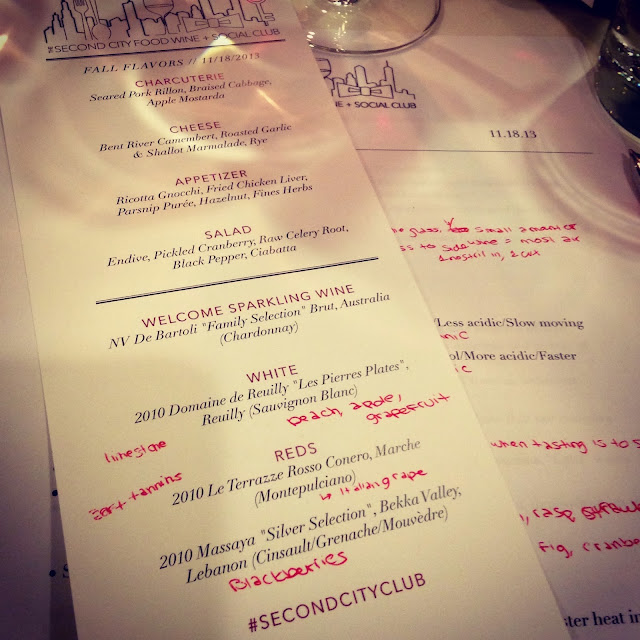 THE SECOND CITY FOOD WINE + SOCIAL CLUB
FALL FLAVORS // 11/18/2013
CHARCUTERIE
Seared Pork Rillon, Braised Cabbage,
Apple Mostarda
CHEESE
Bent River Camembert, Roasted Garlic
& Shallot Marmalade, Rye
APPETIZER
Ricotta Gnocchi, Fried Chicken Liver,
Parsnip Purée, Hazelnut, Fines Herbs
SALAD
Endive, Pickled Cranberry, Raw Celery Root,
Black Pepper, Ciabatta
WELCOME SPARKLING WINE
NV De Bartoli "Family Selection" Brut, Australia
(Chardonnay)
WHITE
2010 Domaine de Reuilly "Les Pierres Plates",
Reuilly (Sauvignon Blanc)
peach, apple,
grapefruit
limestone
REDS
soft tannins
2010 Le Terrazze Rosso Conero, Marche
(Montepulciano)
↳ Italian grape
2010 Massaya "Silver Selection", Bekka Valley,
Lebanon (Cinsault/Grenache/Mouvèdre)
Blackberries
#SECONDCITYCLUB
NE + SOCIAL CLUB
11.18.13
glass, small amount of
ss to side wine = most air
1 nostril in, 2 out
/Less acidic/Slow moving
ol/More acidic/Faster
when tasting is to s
Fig, cranbe
ster heat in